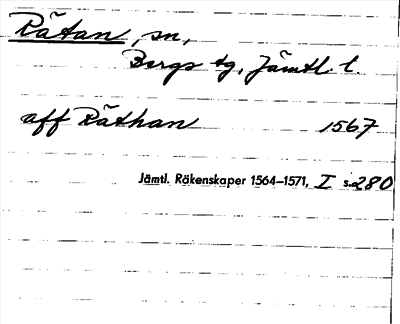 Rätan, sn,
Bergs tg, Jämtl. l.
aff Räthan 1567
Jämtl. Räkenskaper 1564–1571, I s. 280